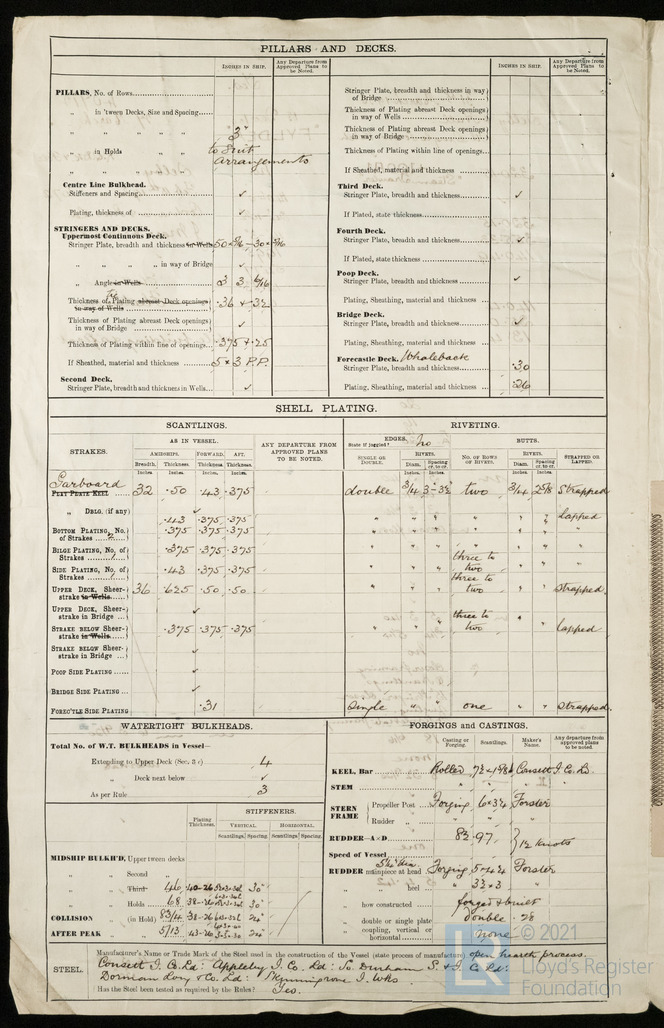 PILLARS AND DECKS.
INCHES IN SHIP. Any Departure from Approved Plans to be Noted.
PILLARS, No. of Rows
„ in 'tween Decks, Size and Spacing
„ „ „ „ „ 3"
„ in Holds „ „ to Suit arrangements
Centre Line Bulkhead.
Stiffeners and Spacing ✓
Plating, thickness of ✓
STRINGERS AND DECKS.
Uppermost Continuous Deck.
Stringer Plate, breadth and thickness in Wells
„ „ „ „ in way of Bridge ✓
„ Angle in Wells 3 3
Thickness of Plating abreast Deck openings in way of Wells .36 + .32
Thickness of Plating abreast Deck openings in way of Bridge ✓
Thickness of Plating within line of openings .375 + .25
If Sheathed, material and thickness 5 × 3 P.P.
Second Deck.
Stringer Plate, breadth and thickness in Wells ✓
INCHES IN SHIP. Any Departure from Approved Plans to be Noted.
Stringer Plate, breadth and thickness in way of Bridge
Thickness of Plating abreast Deck openings in way of Wells
Thickness of Plating abreast Deck openings in way of Bridge
Thickness of Plating within line of openings
If Sheathed, material and thickness
Third Deck.
Stringer Plate, breadth and thickness ✓
If Plated, state thickness
Fourth Deck.
Stringer Plate, breadth and thickness ✓
If Plated, state thickness
Poop Deck.
Stringer Plate, breadth and thickness ✓
Plating, Sheathing, material and thickness
Bridge Deck.
Stringer Plate, breadth and thickness ✓
Plating, Sheathing, material and thickness
Forecastle Deck. Whaleback
Stringer Plate, breadth and thickness .30
Plating, Sheathing, material and thickness .26
SHELL PLATING.
SCANTLINGS. RIVETING.
STRAKES. AS IN VESSEL. ANY DEPARTURE FROM APPROVED PLANS TO BE NOTED. EDGES. No BUTTS.
State if joggled?
AMIDSHIPS. FORWARD. AFT. SINGLE OR DOUBLE. RIVETS. No. OF ROWS OF RIVETS. RIVETS. STRAPPED OR LAPPED.
Breadth. Thickness. Thickness. Thickness. Diam. Spacing cr. to cr. Diam. Spacing cr. to cr.
Inches. Inches. Inches. Inches. Inches. Inches. Inches. Inches.
Garboard
FLAT PLATE KEEL 32 .50 .43 .375 double 3/4 3 - 3½ two 3/4 2⅝ Strapped
„ DBLG. (if any) ✓
.43 .375 .375 „ „ „ „ „ „ lapped
BOTTOM PLATING, No. of Strakes 2 .375 .375 .375 „ „ „ „ „ „ „
BILGE PLATING, No. of Strakes 1 .375 .375 .375 „ „ „ „ „ „ „
SIDE PLATING, No. of Strakes 1 .43 .375 .375 „ „ „ three to two „ „ „
UPPER DECK, Sheerstrake in Wells 36 .625 .50 .50 „ „ „ three to two „ „ Strapped
UPPER DECK, Sheerstrake in Bridge ✓
STRAKE BELOW Sheerstrake in Wells .375 .375 .375 „ „ „ three to two „ „ lapped
STRAKE BELOW Sheerstrake in Bridge ✓
POOP SIDE PLATING ✓
BRIDGE SIDE PLATING ✓
FOREC'TLE SIDE PLATING .31 Single „ „ one „ „ Strapped
WATERTIGHT BULKHEADS.
Total No. of W.T. BULKHEADS in Vessel—
Extending to Upper Deck (Sec. 3 c) 4
„ Deck next below ✓
As per Rule 3
Plating Thickness. STIFFENERS.
VERTICAL HORIZONTAL
Scantlings. Spacing. Scantlings. Spacing.
MIDSHIP BULKH'D, Upper tween decks
„ „ Second „
„ „ Third „ 46 .40-.26 30"
„ „ Holds 68 .38-.26 30"
COLLISION „ (in Hold) .38-.26
AFTER PEAK „ „ .43-.26
FORGINGS and CASTINGS.
Casting or Forging. Scantlings. Maker's Name. Any departure from approved plans to be noted.
KEEL, Bar Rolled Consett I. Co. Ld.
STEM „ „
STERN FRAME Propeller Post Forging 6 × 3¼ Forster
Rudder „
RUDDER—A×D 12 knots
Speed of Vessel
RUDDER mainpiece at head Forging Forster
„ „ heel „ 3½ × 3 „
„ how constructed forged & built
„ double or single plate double .28
„ coupling, vertical or horizontal none
STEEL. Manufacturer's Name or Trade Mark of the Steel used in the construction of the Vessel (state process of manufacture) open hearth process.
Consett I. Co. Ld: Appleby I. Co. Ld: So. Durham S. & I. C. Ld:
Dorman Long & Co. Ld: Skinningrove I. Wks.
Has the Steel been tested as required by the Rules? Yes.
LR © 2021
Lloyd's Register
Foundation